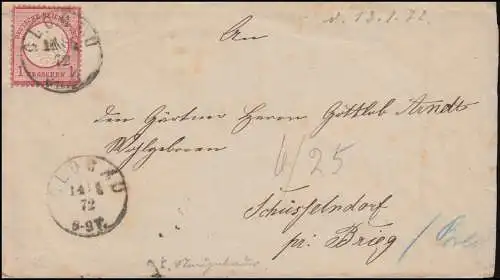 v. 13.1.72
DEUTSCHE REICHS-POST
1 GROSCHEN 1
GLOGAU
72
An
den Gärtner Herrn Gottlob Arndt
Wohlgeboren
6/25
GLOGAU
14
72
6-9V.
Schüsselndorf
pr. Brieg